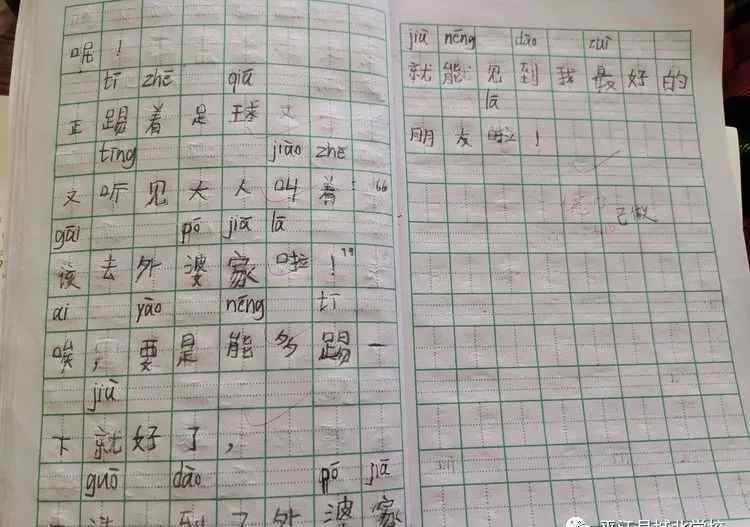 呢！
tī zhē qiā
正踢着足球又
tīng jiāo zhe
又听见大人叫着："
gāi pō jiā lā
该去外婆家啦！"
ai yāo nēng tī
唉，要是能多踢一
jiū
下就好了，
guō dāo pō jiā
到了外婆家
jiū nēng dāo zuī
就能见到我最好的
lā
朋友啦！
已做
平江县